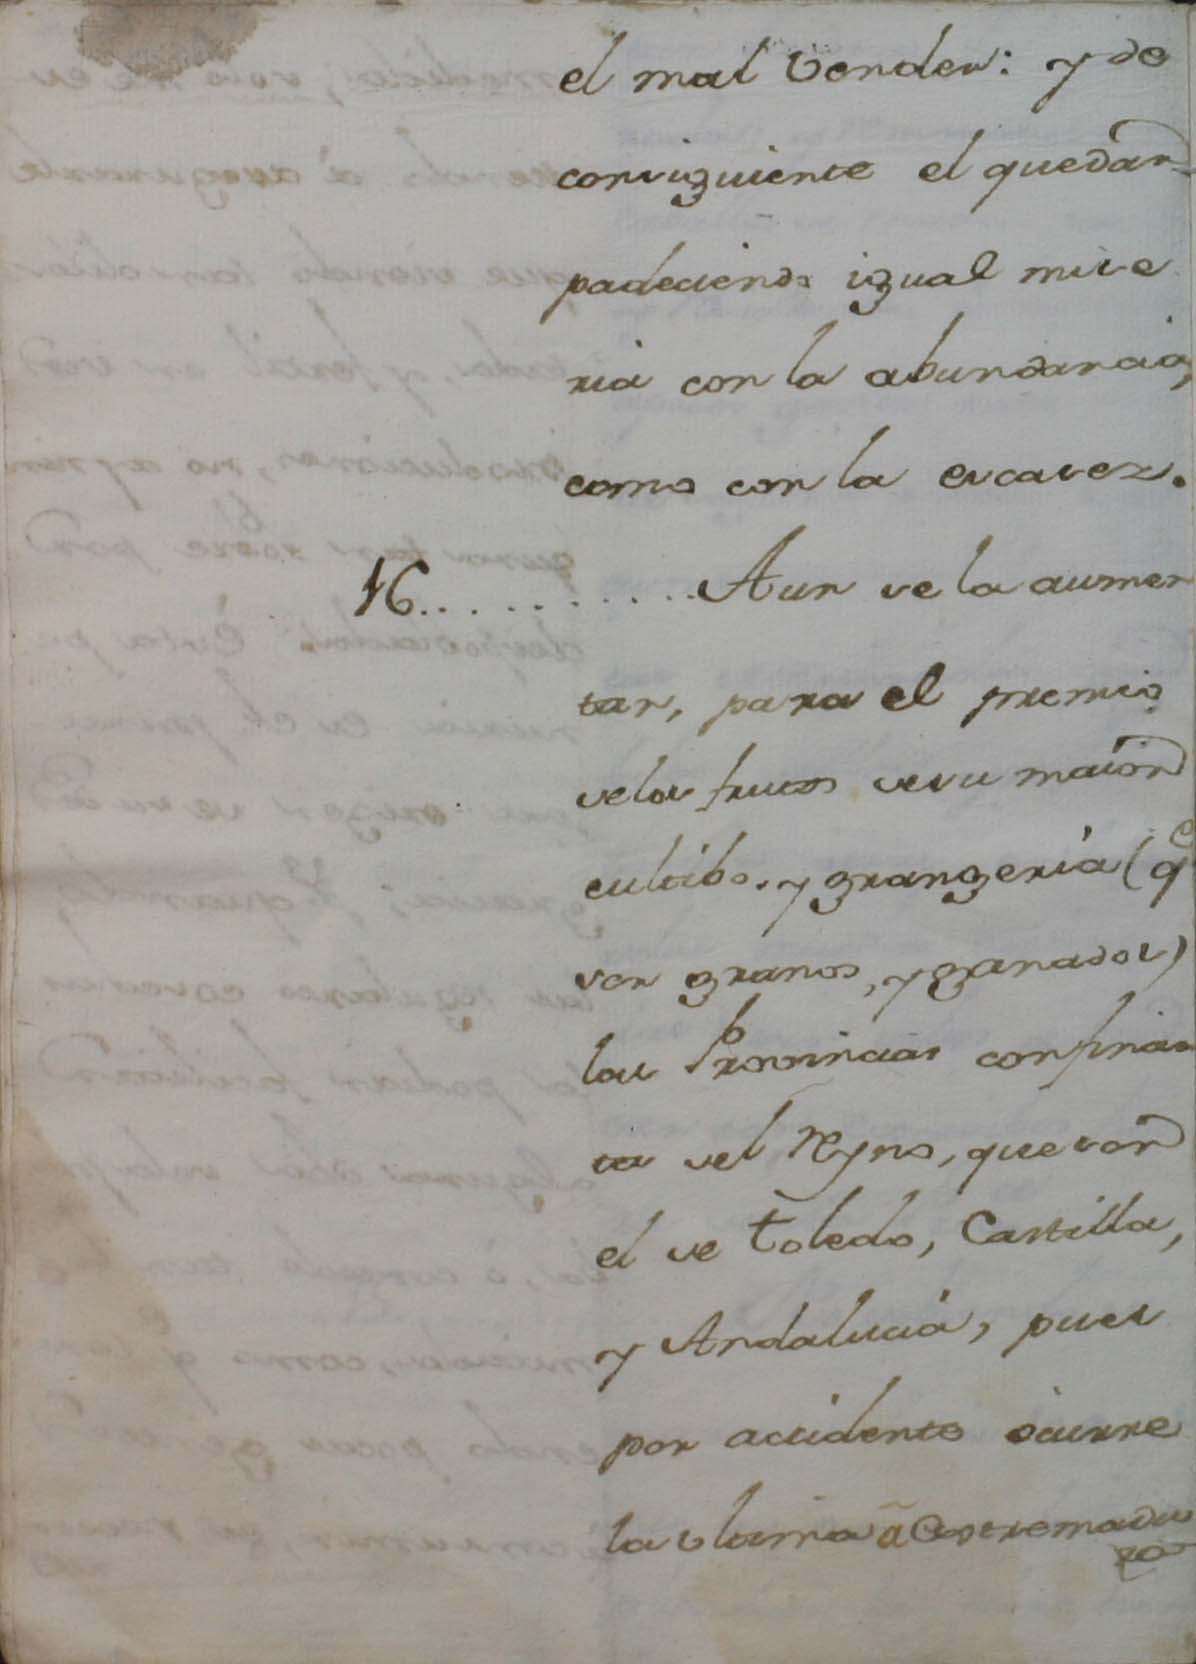 el mal vender: y de
consiguiente el quedar
padeciendo igual mise
ria con la abundancia,
como con la escasez.
16........... Aun se la aumen
tar, para el premio
de los frutos de su maior
cultibo, y grangeria (q.e
son granos, y ganados)
las Provincias confinan
tes del Reyno, que son
el de Toledo, Castilla,
y Andalucia, pues
por accidente ocurre
la ultima á Extremadu
ra